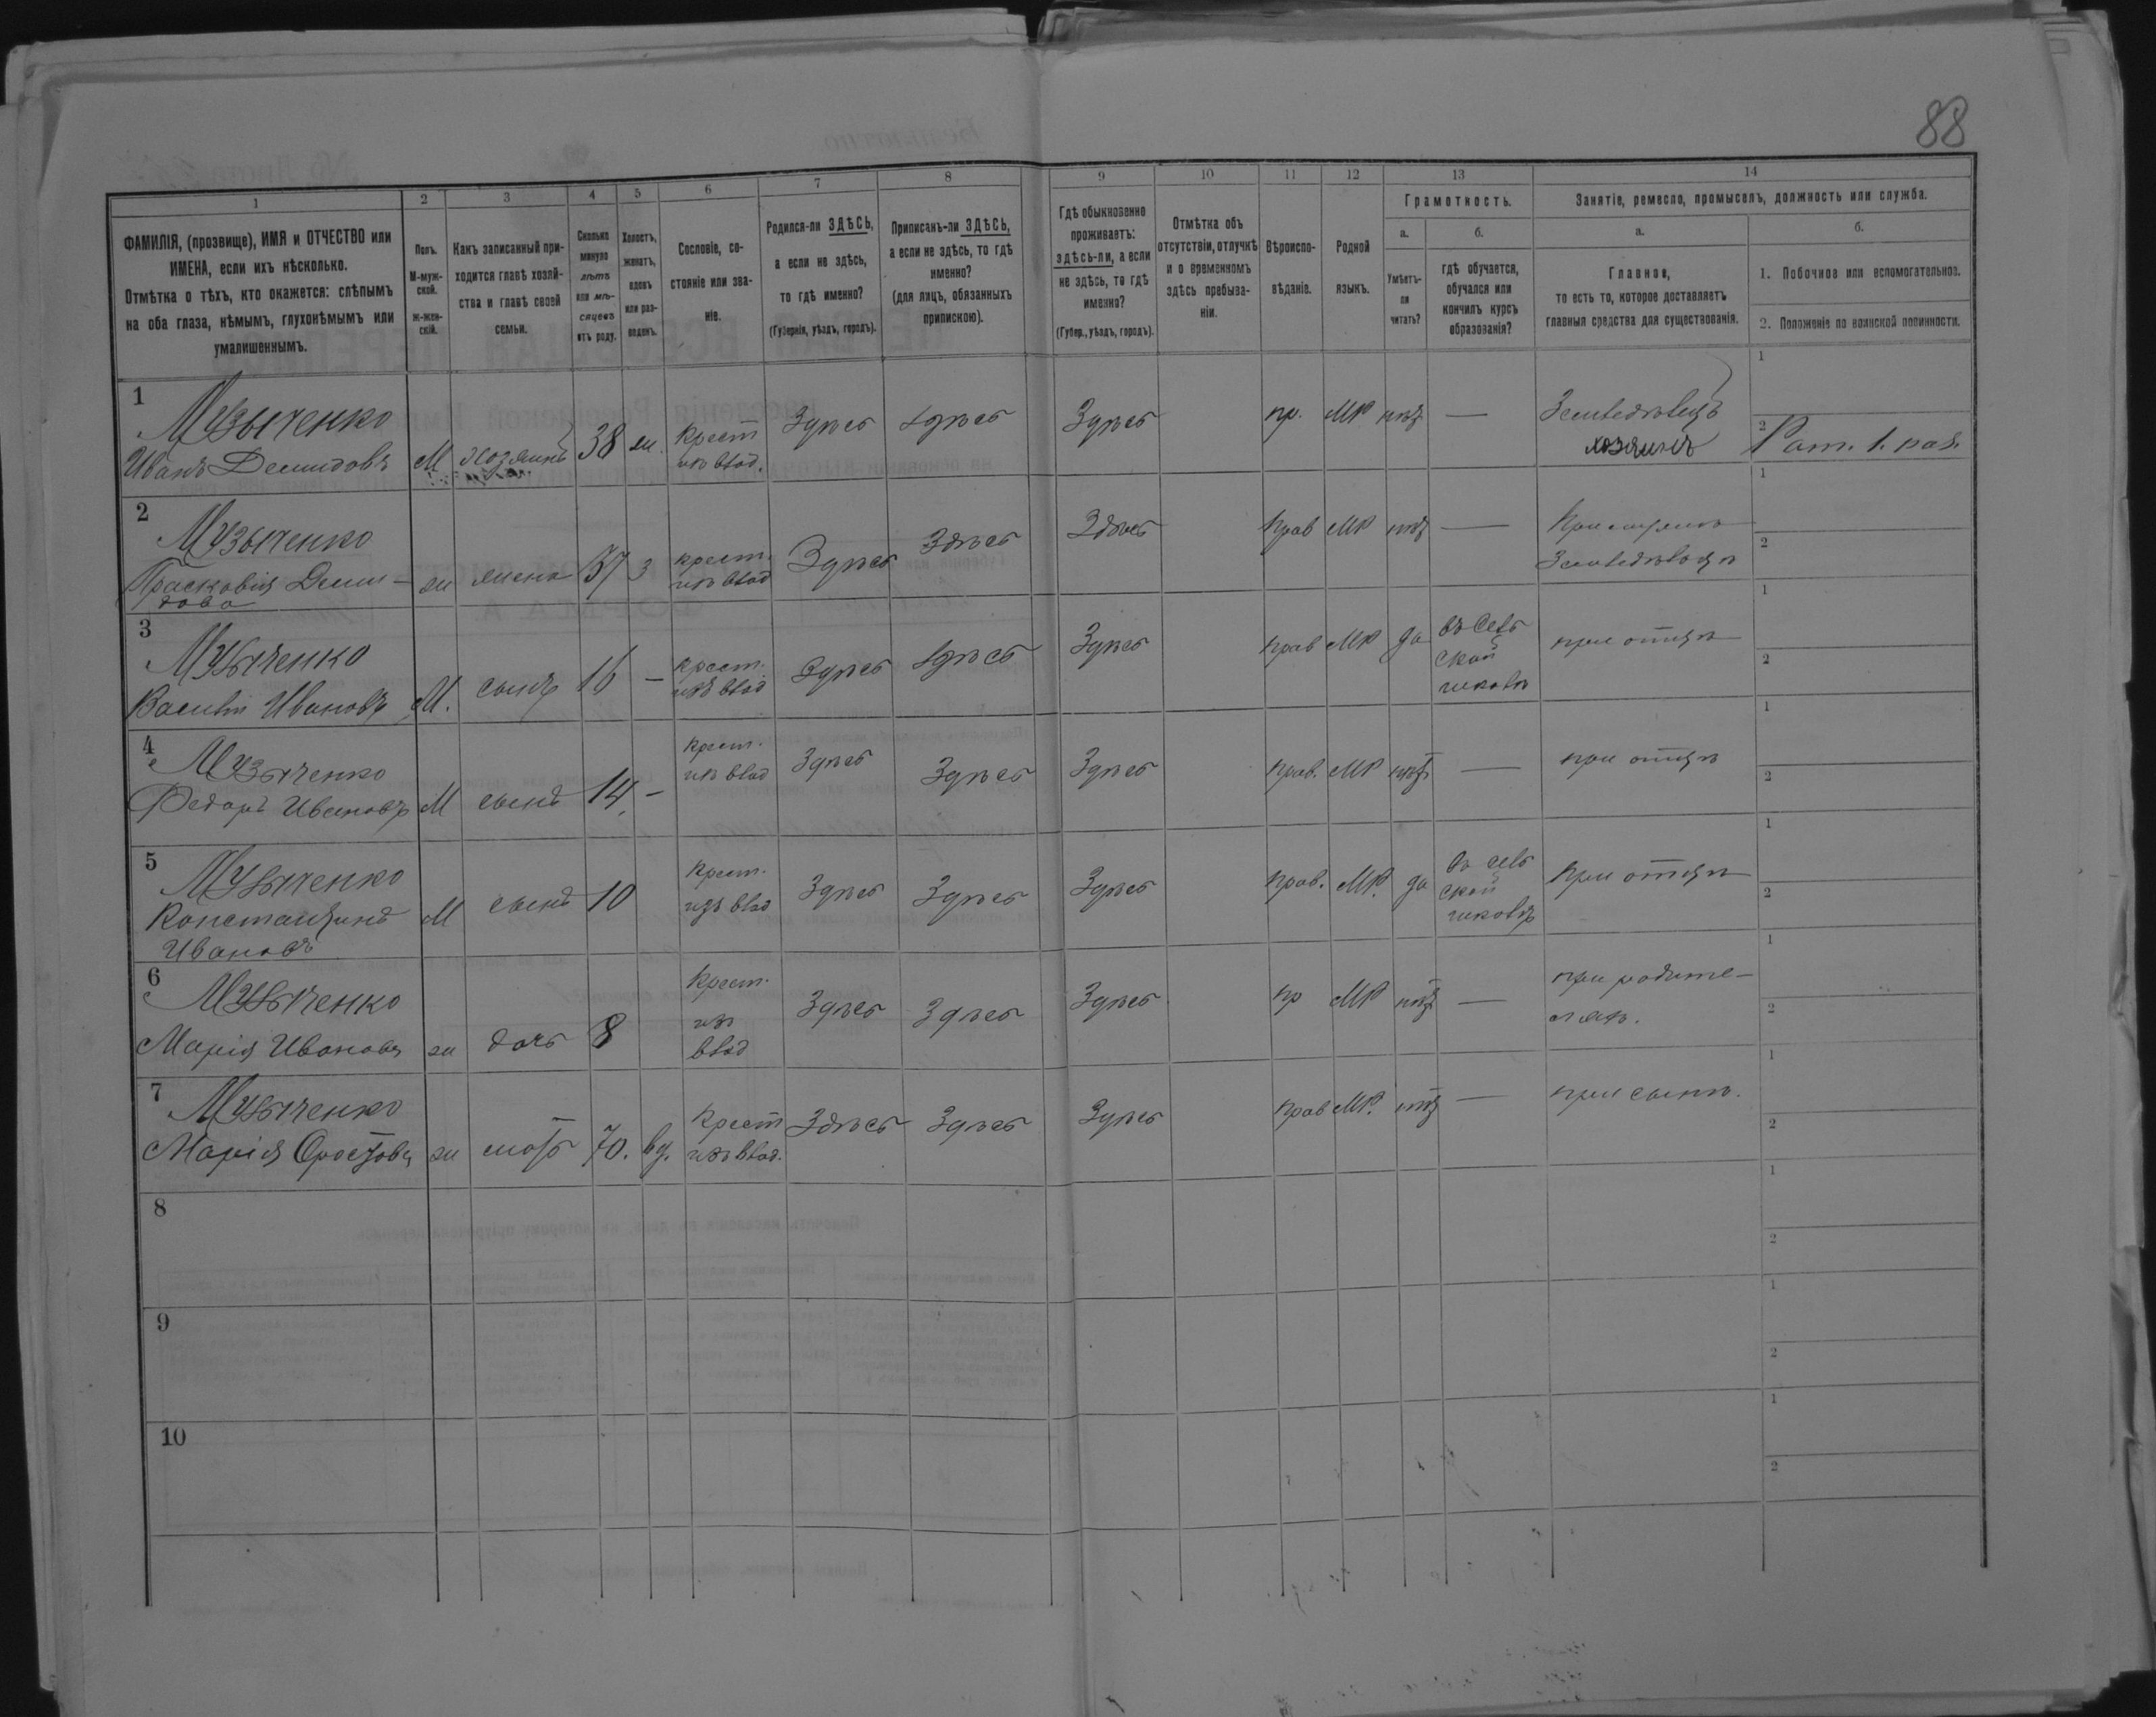 88
1
2
3
4
5
6
7
8
9
10
11
12
13
14
ФАМИЛІЯ, (прозвище), ИМЯ и ОТЧЕСТВО или
ИМЕНА, если ихъ нѣсколько.
Отмѣтка о тѣхъ, кто окажется: слѣпымъ
на оба глаза, нѣмымъ, глухонѣмымъ или
умалишеннымъ.
Полъ.
М-муж-
ской.
Ж-жен-
скій.
Какъ записанный при-
ходится главѣ хозяй-
ства и главѣ своей
семьи.
Сколько
минуло
лѣтъ
или мѣ-
сяцевъ
отъ роду.
Холостъ,
женатъ,
вдовъ
или раз-
веденъ.
Сословіе, со-
стояніе или зва-
ніе.
Родился-ли ЗДѢСЬ,
а если не здѣсь,
то гдѣ именно?
(Губернія, уѣздъ, городъ).
Приписанъ-ли ЗДѢСЬ,
а если не здѣсь, то гдѣ
именно?
(для лицъ, обязанныхъ
припискою).
Гдѣ обыкновенно
проживаетъ:
здѣсь-ли, а если
не здѣсь, то гдѣ
именно?
(Губер., уѣздъ, городъ).
Отмѣтка объ
отсутствіи, отлучкѣ
и о временномъ
здѣсь пребыва-
ніи.
Вѣроиспо-
вѣданіе.
Родной
языкъ.
Грамотность.
а.
Умѣетъ-
ли
читать?
б.
гдѣ обучается,
обучался или
кончилъ курсъ
образованія?
Занятіе, ремесло, промыселъ, должность или служба.
а.
Главное,
то есть то, которое доставляетъ
главныя средства для существованія.
б.
1. Побочное или вспомогательное.
2. Положеніе по воинской повинности.
1
Музыченко
Иванъ Демидовъ
М
хозяинъ
38
ж.
Крест
изъ влад.
Здѣсь
Здѣсь
Здѣсь
пр.
МР
нѣт
—
Земледѣлецъ
хозяинъ
1
2
Рат. 1. раз.
2
Музыченко
Прасковія Деми-
дова
ж
жена
37
з
крест.
изъ влад
Здѣсь
Здѣсь
Здѣсь
Прав
МР
нѣт
—
При мужѣ
Земледѣльцѣ
1
2
3
Музыченко
Василій Ивановъ
М.
сынъ
16
—
крест.
изъ влад
Здѣсь
Здѣсь
Здѣсь
прав
МР
да
въ Сель
ской
школѣ
при отцѣ
1
2
4
Музыченко
Федоръ Ивановъ
М
сынъ
14.
—
крест.
изъ влад
Здѣсь
Здѣсь
Здѣсь
прав.
МР
нѣт
—
при отцѣ
1
2
5
Музыченко
Константинъ
Ивановъ
М
сынъ
10
Крест.
изъ влад
Здѣсь
Здѣсь
Здѣсь
прав.
МР.
да
въ сель
ской
школѣ
При отцѣ
1
2
6
Музыченко
Марія Иванова
ж
дочь
8
Крест.
изъ
влад
Здѣсь
Здѣсь
Здѣсь
пр
МР
нѣт
—
при родите-
ляхъ.
1
2
7
Музыченко
Марія
ж
мать
70.
вд.
Крест
изъ влад.
Здѣсь
Здѣсь
Здѣсь
Прав
МР.
нѣт
—
при сынѣ.
1
2
8
1
2
9
1
2
10
1
2